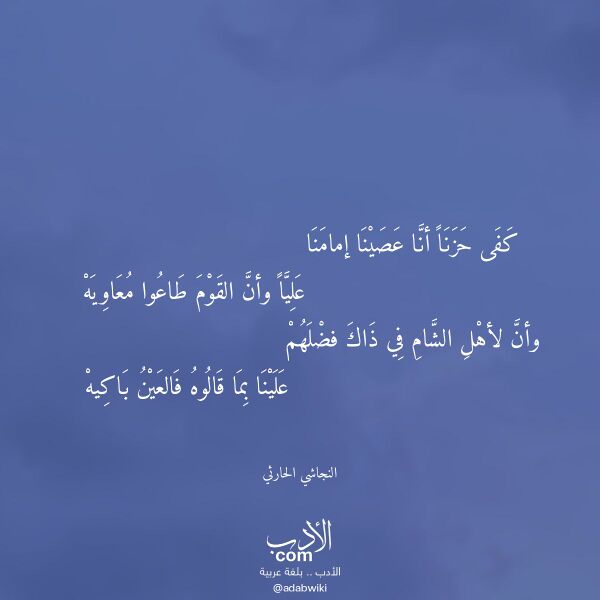 كَفَى حَزَنَاً أنَّا عَصَيْنَا إمامَنَا
عَلِيَّاً وأنَّ القَوْمَ طَاعُوا مُعَاوِيَهْ
وأنَّ لأهْلِ الشَّامِ فِي ذَاكَ فضْلَهُمْ
عَلَيْنَا بِمَا قَالُوهُ فَالعَيْنُ بَاكِيهْ
النجاشي الحارثي
الأدب
com
الأدب .. بلغة عربية
@adabwiki